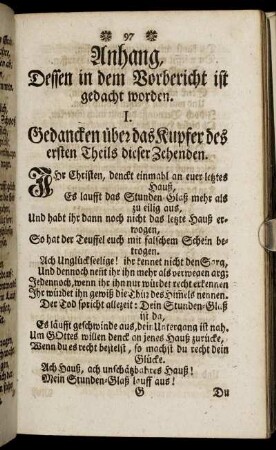 97
Anhang,
Dessen in dem Vorbericht ist
gedacht worden.
I.
Gedancken über das Kupfer des
ersten Theils dieser Zehenden.
Ihr Christen, denckt einmahl an euer letztes
Hauß,
Es laufft das Stunden-Glaß mehr als
zu eilig aus,
Und habt ihr dann noch nicht das letzte Hauß er-
wogen,
So hat der Teuffel euch mit falschem Schein be-
trogen.
Ach Unglückseelige! ihr kennet nicht den Sarg,
Und dennoch nennt ihr ihn mehr als verwegen arg;
Jedennoch, wenn ihr ihn nur würdet recht erkennen
Ihr würdet ihn gewiß die Thür des Himels nennen.
Der Tod spricht allezeit: Dein Stunden-Glaß
ist da,
Es läufft geschwinde aus, dein Untergang ist nah.
Um GOttes willen denck an jenes Hauß zurücke,
Wenn du es recht , so machst du recht dein
Glücke.
Ach Hauß, ach unschätzbahres Hauß!
Mein Stunden-Glaß lauff aus!
G Du